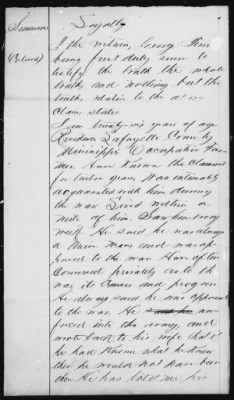 Loyalty
I the witness, being
being first duly sworn to
testify the truth the whole
truth and nothing but the
truth relative to the
Claim states
I am twenty six years of age
Residence Lafayette County
Mississippi Occupation Far-
mer Have Known the Claimant
for twelve years Was intimately
acquainted with him during
the war. Lived within a
mile of him. Saw him every
week. He said he was always
a Union man and was op-
posed to the war. Have often
Conversed privately as to the
war its Causes and progress
He always said he was opposed
to the war. He was
forced into the army, and
wrote back to his wife that if
he had Known what he Knew
then he would not have been
there He has told me his